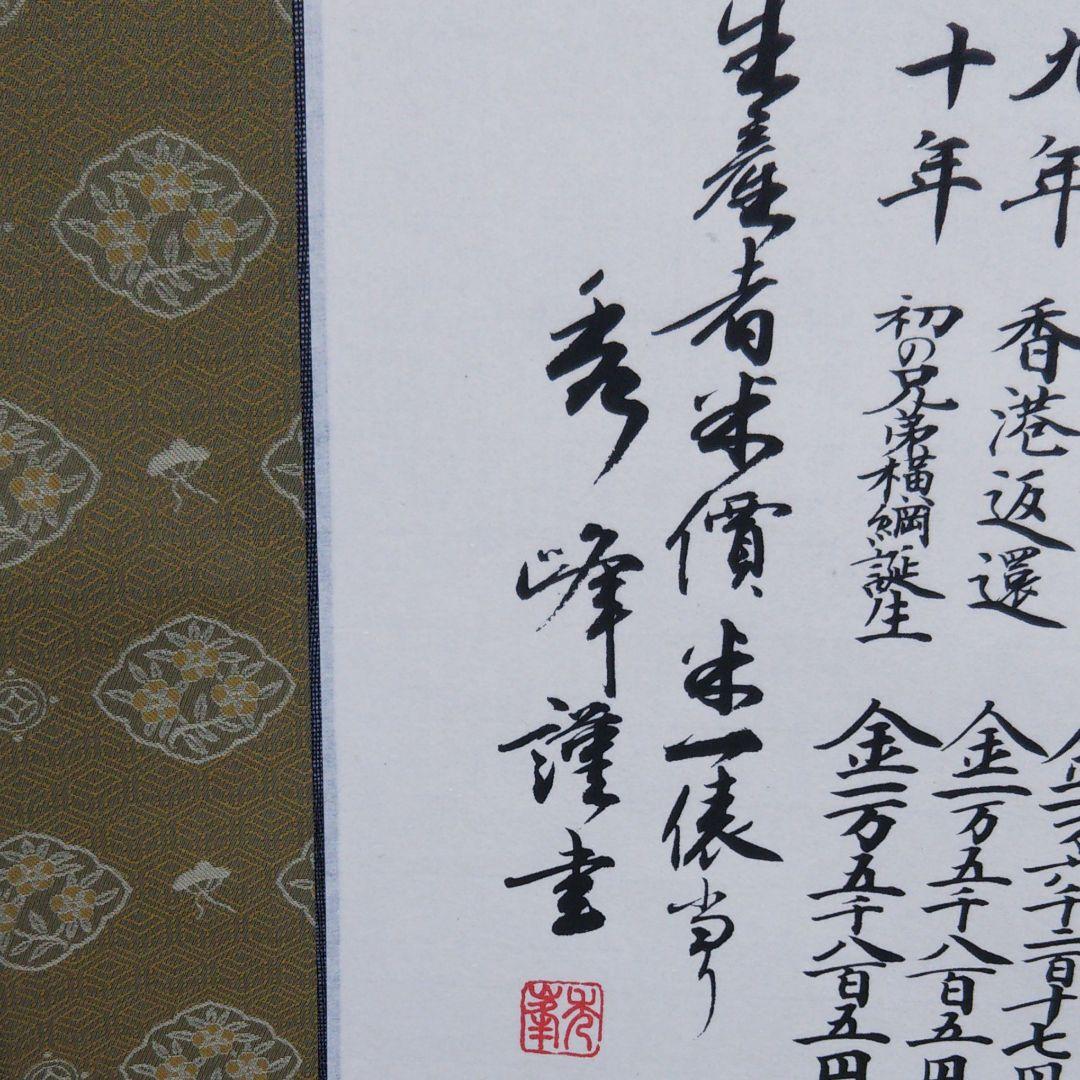 金一万六千二百十七円
九年 香港返還 金一万五千八百五円
十年 初の兄弟横綱誕生 金一万五千八百五円
生産者米價 米一俵当り
秀峰謹書